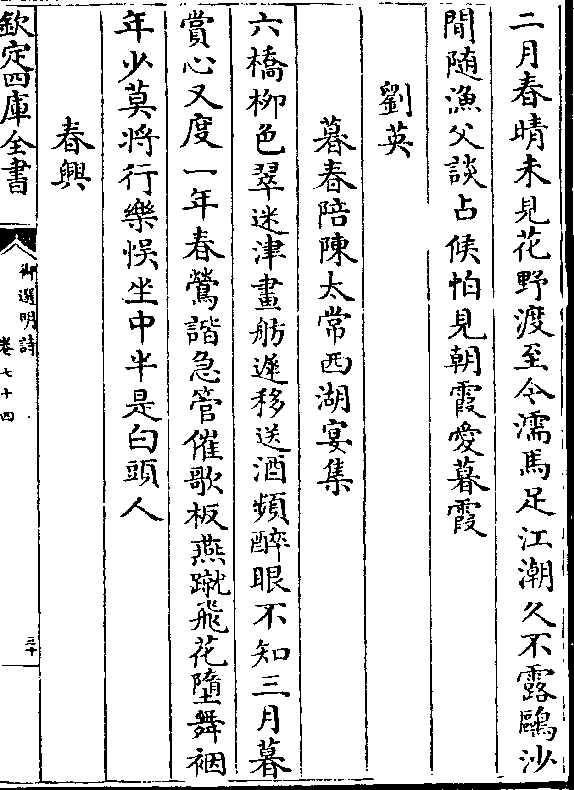 二月春晴未見花野渡至今濡馬足江潮久不露鷗沙
間随漁父談占候怕見朝霞愛暮霞
劉英
暮春陪陳太常西湖宴集
六橋柳色翠迷津畫舫遲移送酒頻醉眼不知三月暮
賞心又度一年春鶯諧急管催歌板燕蹴飛花墮舞裀
年少莫將行樂悞坐中半是白頭人
春興
欽定四庫全書
御選明詩
卷七十四
三十